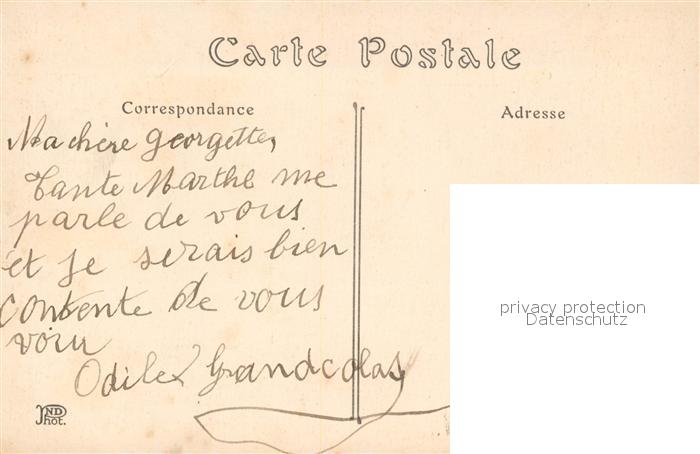 Carte Postale
Correspondance
Adresse
Ma chère georgette,
Tante Marthe me
parle de vous
et je serais bien
contente de vous
voir
Odile Grandcolas
ND
Phot.
privacy protection
Datenschutz